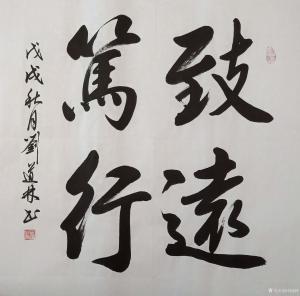 致遠
篤行
戊戌秋月劉道林书